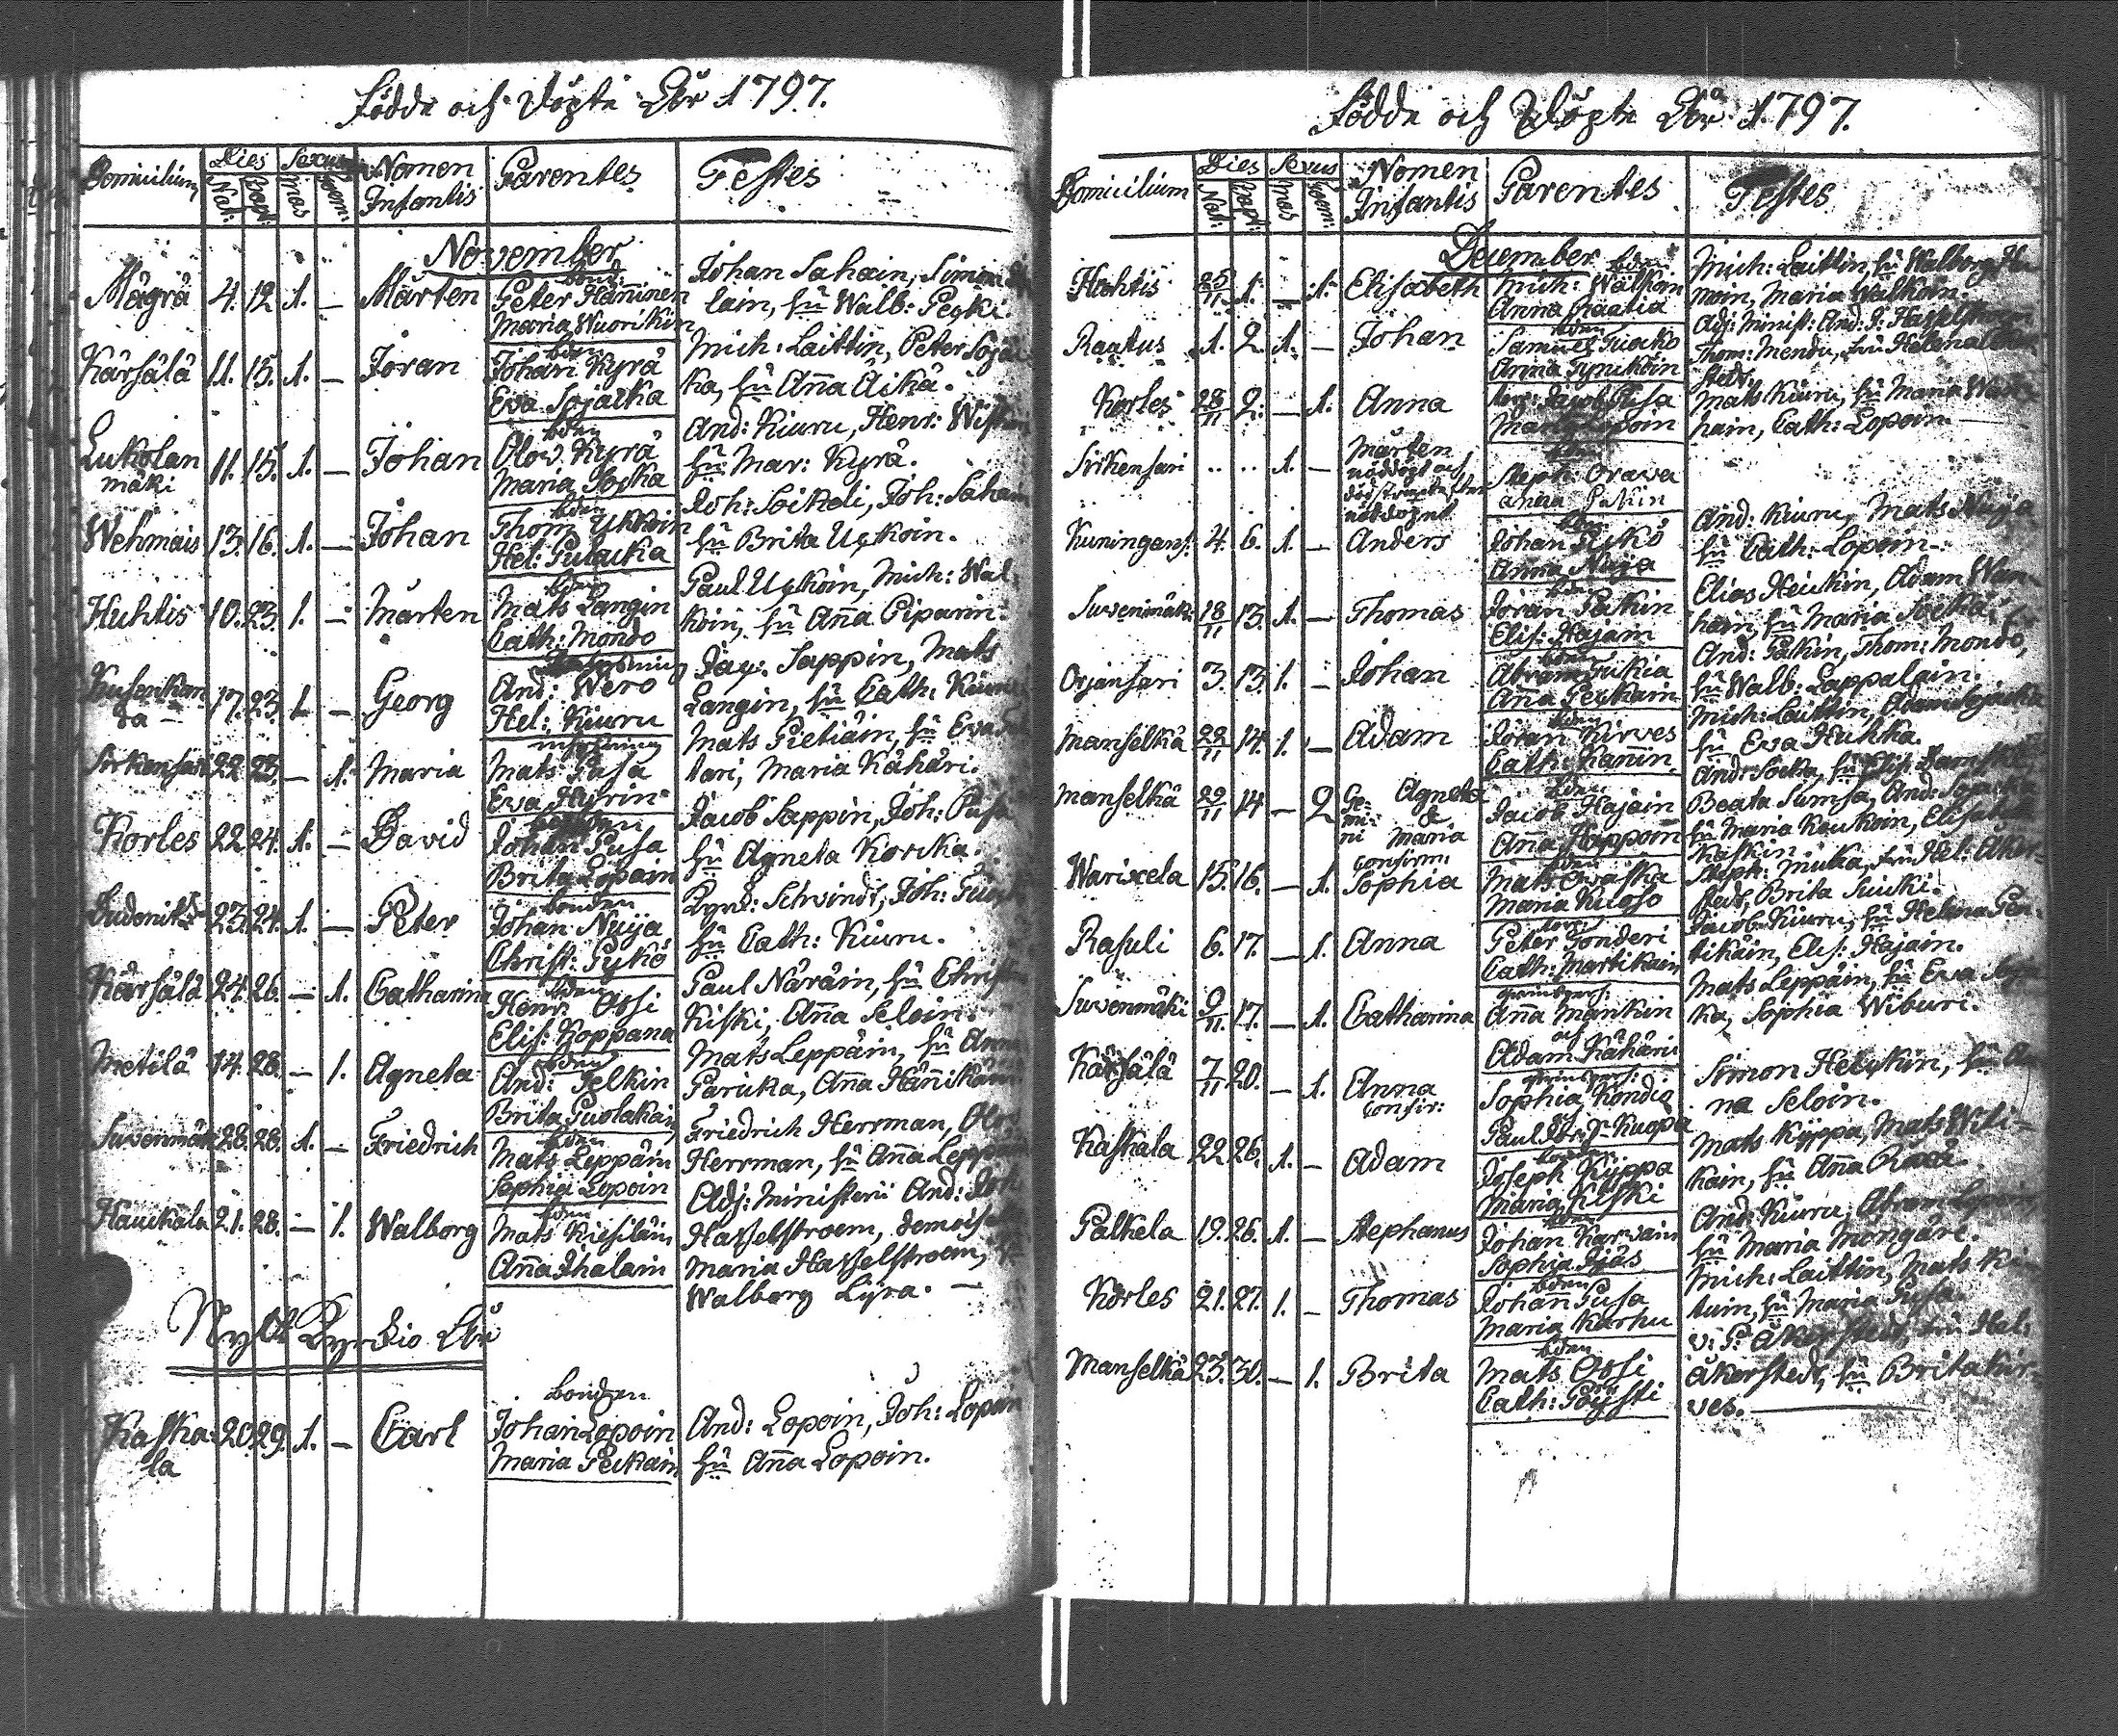 Födde och Döpte Åhr 1797.
Domicilium Dies Nat: Bapt: Sexus Mas Foem: Nomen Infantis Parentes Testes
November
Mägrä 4. 12. 1. — Mårten
bond:
Peter Hänninen
Maria Wuorikin
Johan Sahain, Simon
lain, hu Walb: Peyki.
Kärsälä 11. 15. 1. — Jöran
bden
Johan Kyrä
Eva Sojacka
Mich: Laittin, Peter Soja
ka, hu Anna Aikä.
Lukolan
mäki 11. 15. 1. — Johan
bden
Olow Kyrä
Maria Socka
And: Kiuru, Henr:
hu Mar: Kyrä.
Wehmais 13. 16. 1. — Johan
bden
Thom: Ukkoin
Hel: Pulacka
Joh: Soikeli, Joh: Sahain
hu Brita Uckoin.
Huhtis 10. 23. 1. — Mårten
bden
Mats Langin
Cath: Mondo
Paul Uckoin, Mich: Wal-
koin, hu Anna Piparin.
17. 23. 1. — Georg
And: Wero
Hel: Kiuru
Jac: Sappin, Mats
Langin, hu Cath: Kiuru
Sirkensari 22 23. — 1. Maria
inhysning
Mats Pusa
Eva Hyrin
Mats Pietiäin, hu Eva
tari, Maria Kähäri.
Korles 22 24. 1. — David
Johan Pusa
Brita Lopoin
Jacob Sappin, Joh: Pusa
hu Agneta Korcka.
23. 24. 1. — Peter
bonden
Johan Nuija
Christ: Pykö
Bynd: Schvindt, Joh:
hu Cath: Kiuru.
Kärsälä 24. 26. — 1. Catharina
bden
Henr: Ossi
Elis: Koppana
Paul Näräin, hu Christ
Kiski, Anna Seloin.
Metilä 14. 28. — 1. Agneta
bden
And: Pelkin
Brita Puolakain
Mats Leppäin, hu Anna
Paricka, Anna Hännikäin
Suvenmäki 28. 28. 1. — Friedrich
bden
Mats Leppäin
Sophia Lopoin
Friedrich Herrman, Olof
Herrman, hu Anna Leppäin
Hauckala 21. 28. — 1. Walborg
bden
Mats Kiesiläin
Anna Ihalain
Adj: Ministerii And: Joh:
Hasselstroem, demoiselle
Maria Hasselstroem,
Walborg Lyra. —
Nytt Kyrckio Åhr
Kaska-
la 20. 29. 1. — Carl
bonden
Johan Lopoin
Maria Peckain
And: Lopoin, Joh: Lopoin
hu Anna Lopoin.
Födde och Döpte Åhr 1797.
Domicilium Dies Nat: Bapt: Sexus Mas Foem: Nomen Infantis Parentes Testes
December
Huhtis 25/11 1. — 1. Elisabeth
bden
Mich: Walkoin
Anna Raatia
Mich: Laittin, hu Walborg
moin, Maria Walkoin.
Rautus 1. 2. 1. — Johan
bden
Samuel Tuocko
Anna Tynckoin
Adj: Minist: And: J: Hasselstroem
Thom: Mendu, fru Helena
stedt.
Korles 28/11 2. — 1. Anna
torp: Jacob Pusa
Maria Lopoin
Mats Kiuru, hu Maria
hain, Cath: Lopoin —
Sirkensari .. .. 1. — Mårten
nöddöpt och
död
nöddopet
bden
Steph: Orava
Anna Pakin
Kuningans: 4. 6. 1. — Anders
bden
Johan Pykö
Anna Nuija
And: Kiuru, Mats Nuija
hu Cath: Lopoin —
Suvenmäki 18/11 13. 1. — Thomas
bden
Jöran Pakin
Elis: Hajain
Elias Heickin, Adam Wan-
hain, hu Maria Socka.
Orjansari 3. 13. 1. — Johan
bden
Abram Tukia
Anna Peckain
And: Pakin, Thom: Mondo,
hu Walb: Lappalain.
Manselkä 22/11 14. 1. — Adam
bden
Jöran Kirves
Cath: Kannin
Mich: Laittin, Adam Sojacka
hu Eva Hukka.
Manselkä 29/11 14 — 2 Ge-
mi-
ni Agneta
&
Maria
confirm:
bden
Jacob Hajain
Anna Happoin
And: Socka, hu Elis: Ramski,
Beata Sumsa, And: Sojacka
hu Maria Keukoin, Elisabet
Kaskin.
Warixela 15. 16. — 1. Sophia
bden
Mats Owaska
Maria Kiloso
Steph: Mucka, fru Hel: Åker-
stedt, Brita Suicki.
Rasuli 6. 17. — 1. Anna
torp:
Peter Tonderi
Cath: Martikain
Jacob Kiuru, hu Helena Pen-
tikäin, Elis: Hajain.
Suvenmäki 9/11 17. — 1. Catharina
qvinspers:
Anna Mankin
och
Adam Kähäri
Mats Leppäin, hu Eva Soja-
ka, Sophia Wiburi.
Kärsälä 7/11 20. — 1. Anna
confir:
qvinspers:
Sophia Kondia
Simon Heickin, hu An
na Seloin.
Kaskala 22 26. 1. — Adam
bonden
Joseph Kyppa
Maria Kiski
Mats Kyppa, Mats Wili-
kain, hu Anna Räsä.
Palkela 19. 26. 1. — Stephanus
bden
Johan Karvain
Sophia Ijäs
And: Kiuru, Abram Lopoin,
hu Maria Mongäri.
Korles 21. 27. 1. — Thomas
bden
Johan Pusa
Maria Karhu
Mich: Laittin, Mats Ki-
tuin, hu Maria Pusa.
Manselkä 23. 30. — 1. Brita
bden
Mats Ossi
Cath: Pöysti
v: P: Åkerstedt, fru Hel:
Åkerstedt, hu Brita Kir-
ves.